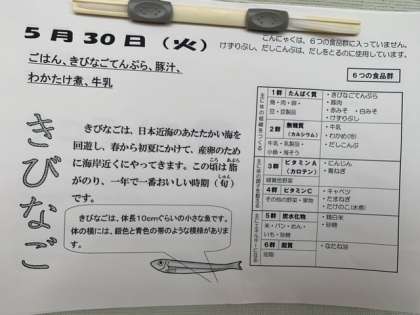 5月30日（火）
こんにゃくは、6つの食品群に入っていません。
けずりぶし、だしこんぶは、だしをとるのに使用しています。
ごはん、きびなごてんぷら、豚汁、
わかたけ煮、牛乳
6つの食品群
きびなご
きびなごは、日本近海のあたたかい海を
回遊し、春から初夏にかけて、産卵のため
に海岸近くにやってきます。この頃は脂
がのり、一年で一番おいしい時期（旬）
です。
きびなごは、体長10cmぐらいの小さな魚です。
体の横には、銀色と青色の帯のような模様がありま
す。
1群 たんぱく質
魚・肉・卵・
豆・豆製品
・きびなごてんぷら
・豚肉
・赤みそ ・白みそ
・けずりぶし
2群 無機質
（カルシウム）
牛乳・乳製品・
小魚・海そう
・牛乳
・わかめ
・だしこんぶ
3群 ビタミンA
（カロテン）
緑黄色野菜
・にんじん
・青ねぎ
4群 ビタミンC
その他の野菜・果物
・キャベツ
・たまねぎ
・たけのこ（水煮）
5群 炭水化物
米・パン・めん・
いも・砂糖
・精白米
・砂糖
6群 脂質
油脂
・なたね油